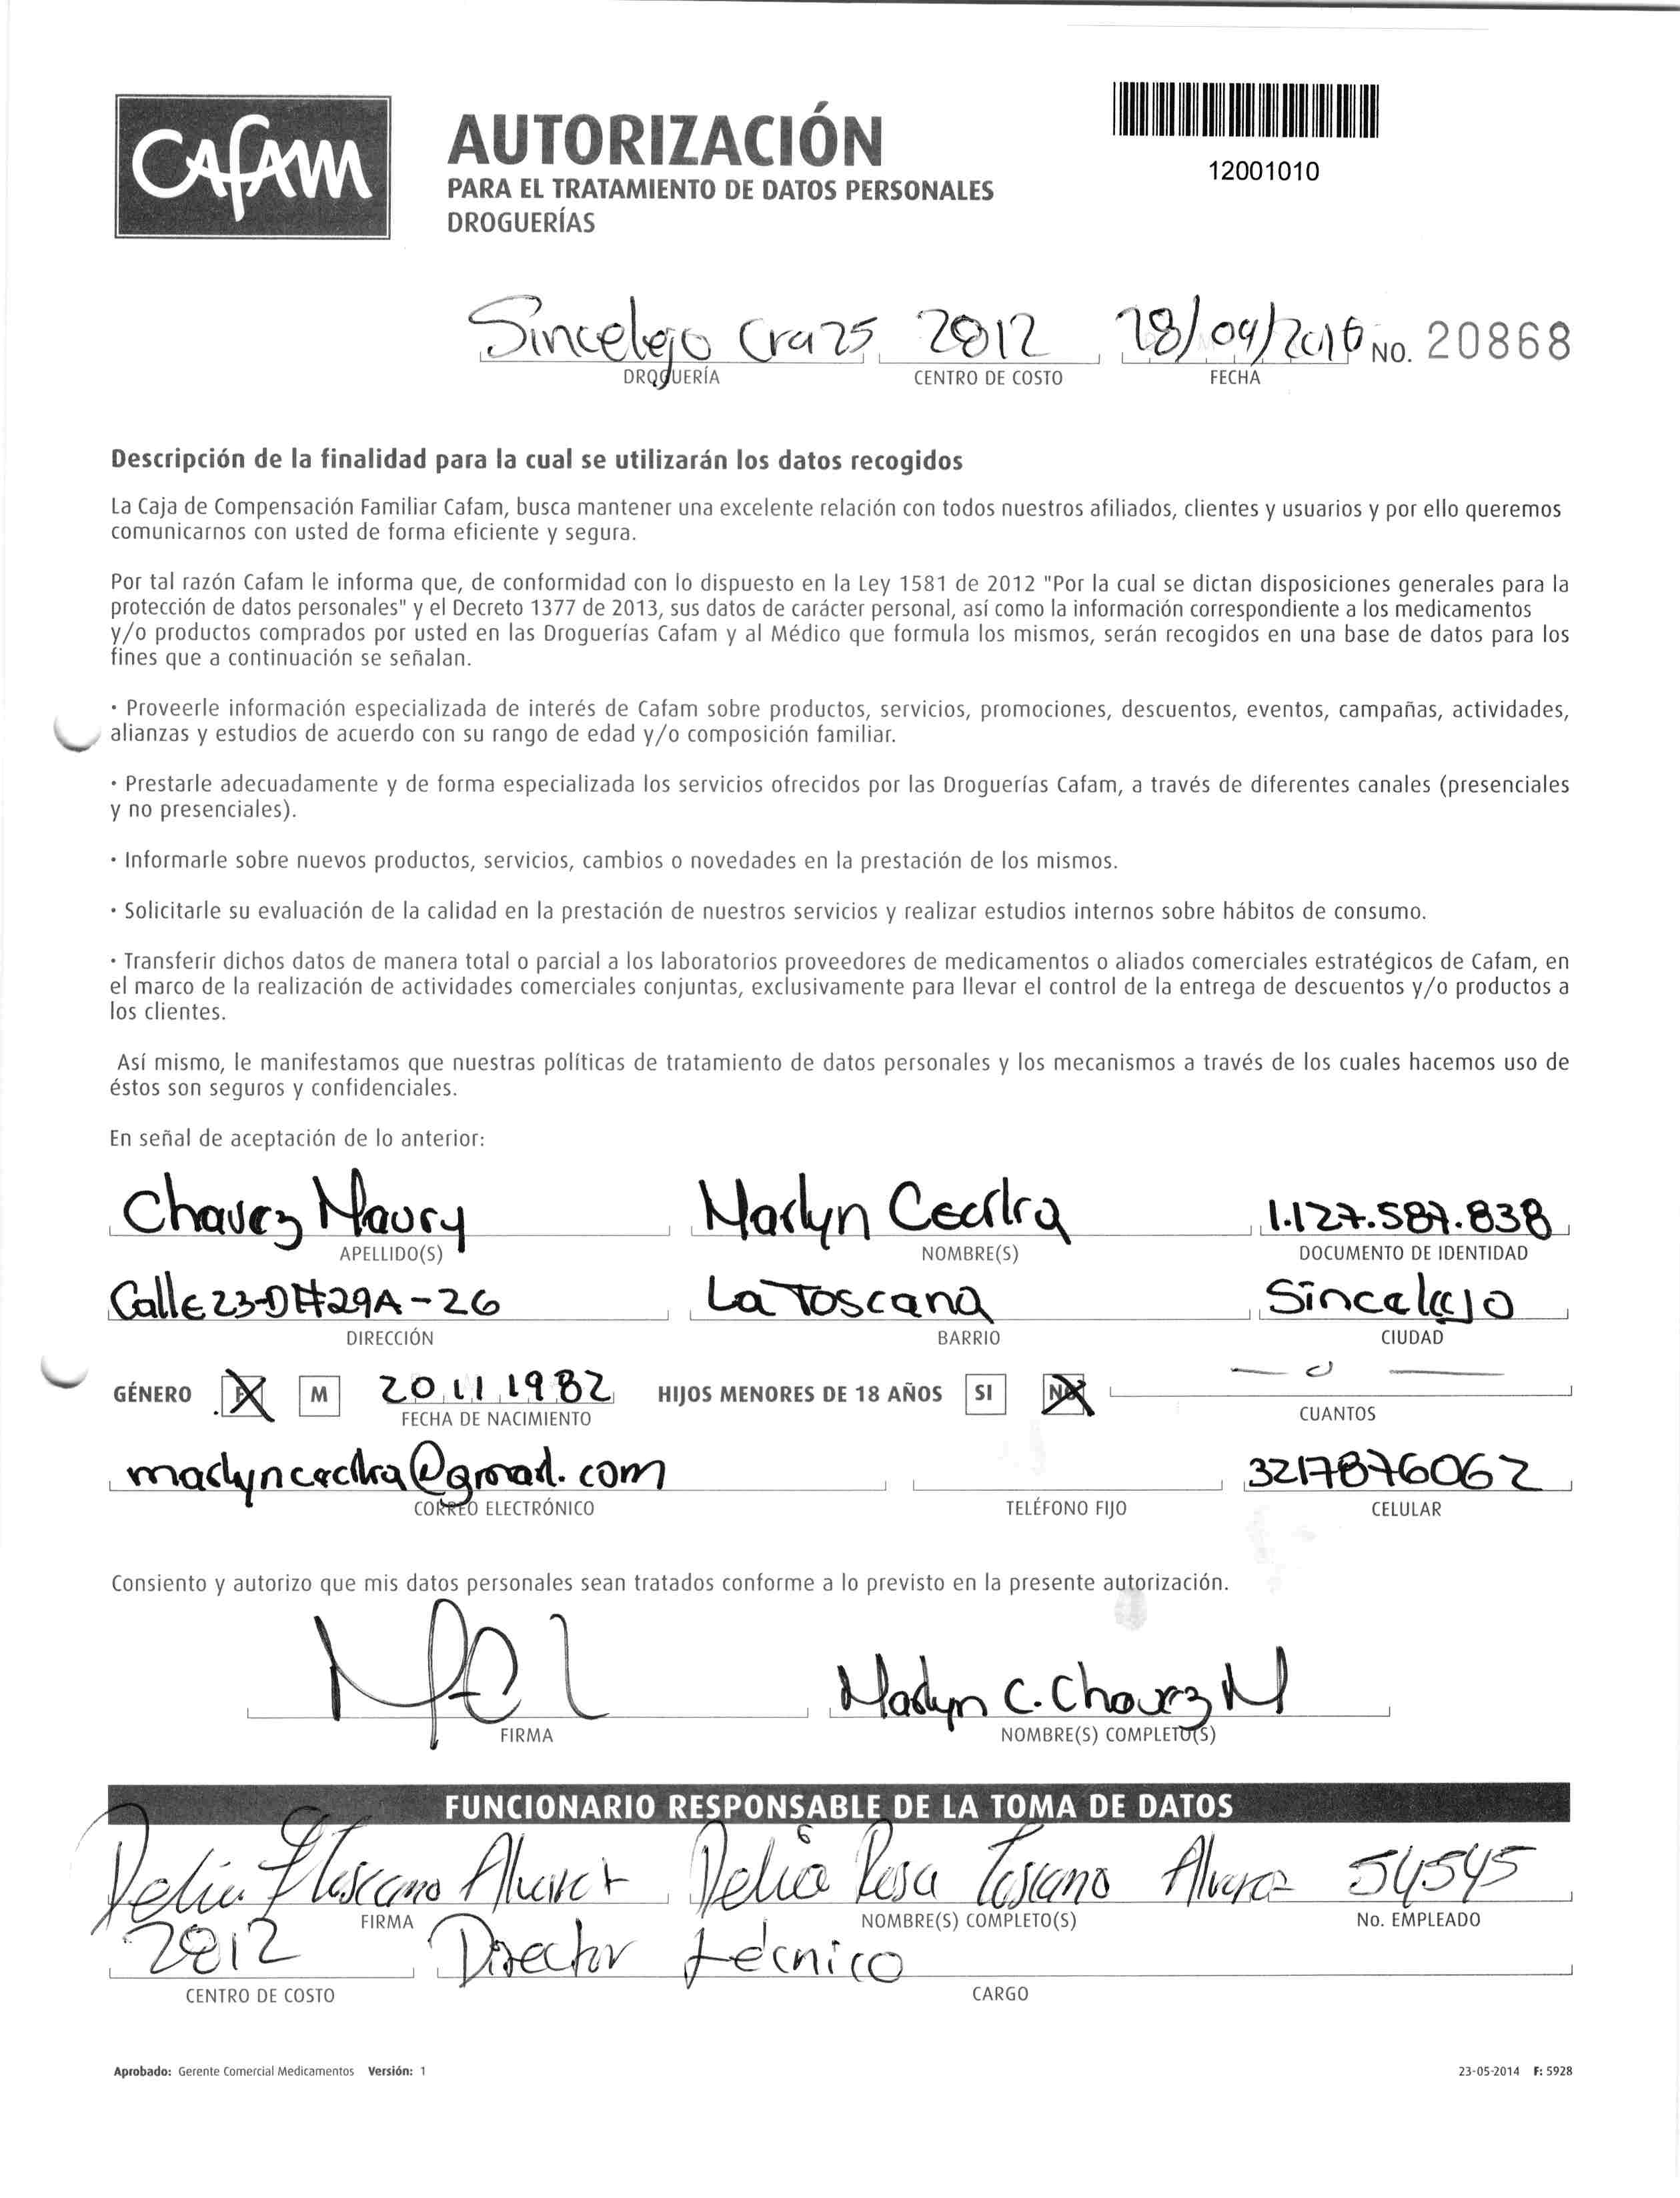 CAFAM
AUTORIZACIÓN
PARA EL TRATAMIENTO DE DATOS PERSONALES
DROGUERÍAS
12001010
Sincelejo Cra 25 2012 28/04/2016 NO. 20868
DROGUERÍA CENTRO DE COSTO FECHA
Descripción de la finalidad para la cual se utilizarán los datos recogidos
La Caja de Compensación Familiar Cafam, busca mantener una excelente relación con todos nuestros afiliados, clientes y usuarios y por ello queremos
comunicarnos con usted de forma eficiente y segura.
Por tal razón Cafam le informa que, de conformidad con lo dispuesto en la Ley 1581 de 2012 "Por la cual se dictan disposiciones generales para la
protección de datos personales" y el Decreto 1377 de 2013, sus datos de carácter personal, así como la información correspondiente a los medicamentos
y/o productos comprados por usted en las Droguerías Cafam y al Médico que formula los mismos, serán recogidos en una base de datos para los
fines que a continuación se señalan.
· Proveerle información especializada de interés de Cafam sobre productos, servicios, promociones, descuentos, eventos, campañas, actividades,
alianzas y estudios de acuerdo con su rango de edad y/o composición familiar.
· Prestarle adecuadamente y de forma especializada los servicios ofrecidos por las Droguerías Cafam, a través de diferentes canales (presenciales
y no presenciales).
· Informarle sobre nuevos productos, servicios, cambios o novedades en la prestación de los mismos.
· Solicitarle su evaluación de la calidad en la prestación de nuestros servicios y realizar estudios internos sobre hábitos de consumo.
· Transferir dichos datos de manera total o parcial a los laboratorios proveedores de medicamentos o aliados comerciales estratégicos de Cafam, en
el marco de la realización de actividades comerciales conjuntas, exclusivamente para llevar el control de la entrega de descuentos y/o productos a
los clientes.
Así mismo, le manifestamos que nuestras políticas de tratamiento de datos personales y los mecanismos a través de los cuales hacemos uso de
éstos son seguros y confidenciales.
En señal de aceptación de lo anterior:
Chavez Maury Marlyn Cecilia 1.127.587.838
APELLIDO(S) NOMBRE(S) DOCUMENTO DE IDENTIDAD
Calle 23D#29A-26 La Toscana Sincelejo
DIRECCIÓN BARRIO CIUDAD
GÉNERO F M 20 11 1982 HIJOS MENORES DE 18 AÑOS SI NO — 0 —
FECHA DE NACIMIENTO CUANTOS
marlyncecilia@gmail.com 3217876062
CORREO ELECTRÓNICO TELÉFONO FIJO CELULAR
Consiento y autorizo que mis datos personales sean tratados conforme a lo previsto en la presente autorización.
Marlyn C. Chavez M
FIRMA NOMBRE(S) COMPLETO(S)
FUNCIONARIO RESPONSABLE DE LA TOMA DE DATOS
Delia Toscano Alvarez Delia Rosa Toscano Alvarez 54545
FIRMA NOMBRE(S) COMPLETO(S) No. EMPLEADO
2012 Director técnico
CENTRO DE COSTO CARGO
Aprobado: Gerente Comercial Medicamentos Versión: 1 23-05-2014 F: 5928